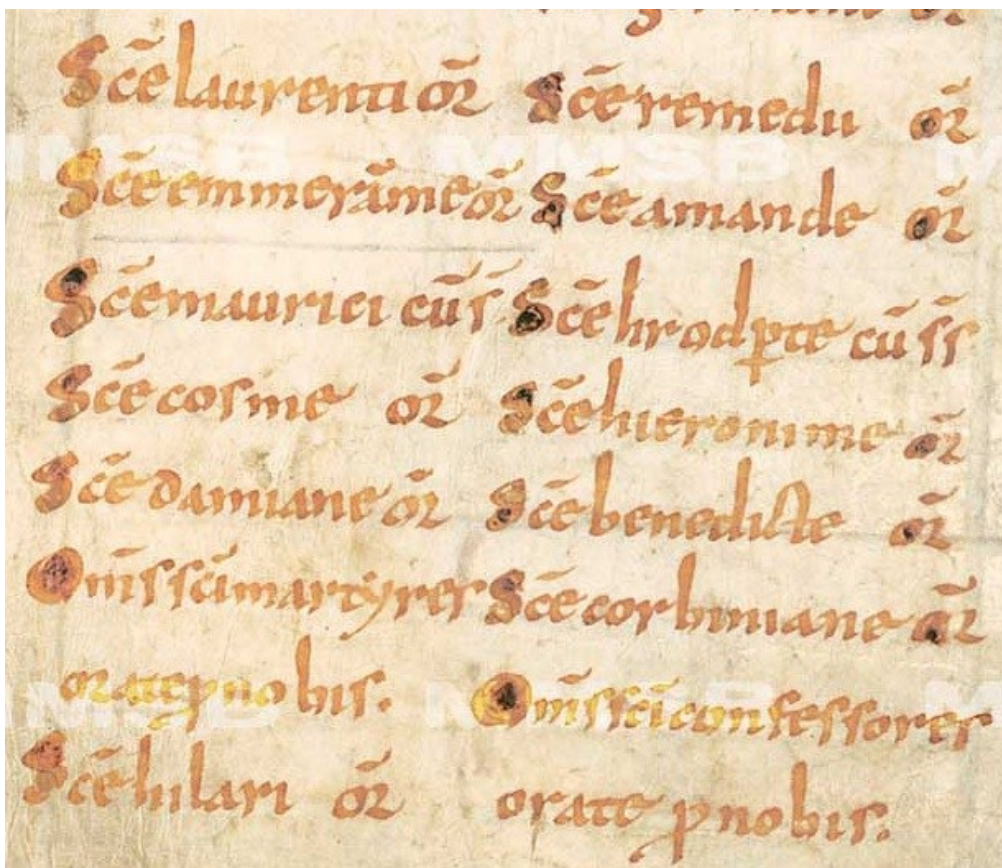 Sc̄e laurenti or̄
Sc̄e emmerām̄e or̄
Sc̄e maurici cū s̄
Sc̄e cosme or̄
Sc̄e damiane or̄
Om̄s sc̄i martyres
orate p nobis.
Sc̄e hilari or̄
Sc̄e remedii or̄
Sc̄e amande or̄
Sc̄e hrodꝑte cū ss
Sc̄e hieronime or̄
Sc̄e benedicte or̄
Sc̄e corbiniane or̄
Om̄s sc̄i confessores
orate p nobis.